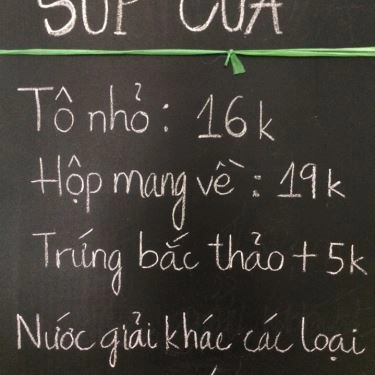 SÚP CUA
Tô nhỏ: 16k
Hộp mang về: 19k
Trứng bắc thảo + 5k
Nước giải khác các loại